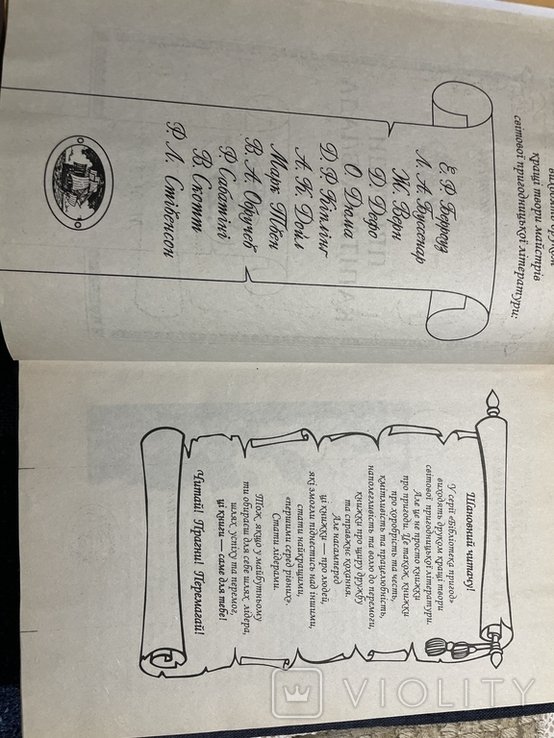 кращі твори майстрів
світової пригодницької літератури:
Е. Р. Берроуз
Л. А. Буссенар
Ж. Верн
Д. Дефо
О. Дюма
Д. Р. Кіплінг
А. К. Дойл
Марк Твен
В. А. Обручев
Р. Сабатіні
В. Скотт
Р. Л. Стівенсон
Шановний читачу!
У серії «Бібліотека пригод»
виходять друком кращі твори
світової пригодницької літератури.
Але це не просто книжки
про пригоди. Це також книжки
про хоробрість та честь,
кмітливість та працелюбність,
наполегливість та волю до перемоги,
книжки про щиру дружбу
та справжнє кохання.
Але насамперед
ці книжки — про людей,
які змогли піднестись над іншими,
стати найкращими,
«першими серед рівних».
Стати лідерами.
Тож, якщо у майбутньому
ти обираєш для себе шлях лідера,
шлях успіху та перемог,
ці книги — саме для тебе!
Читай! Прагни! Перемагай!
VIOLITY